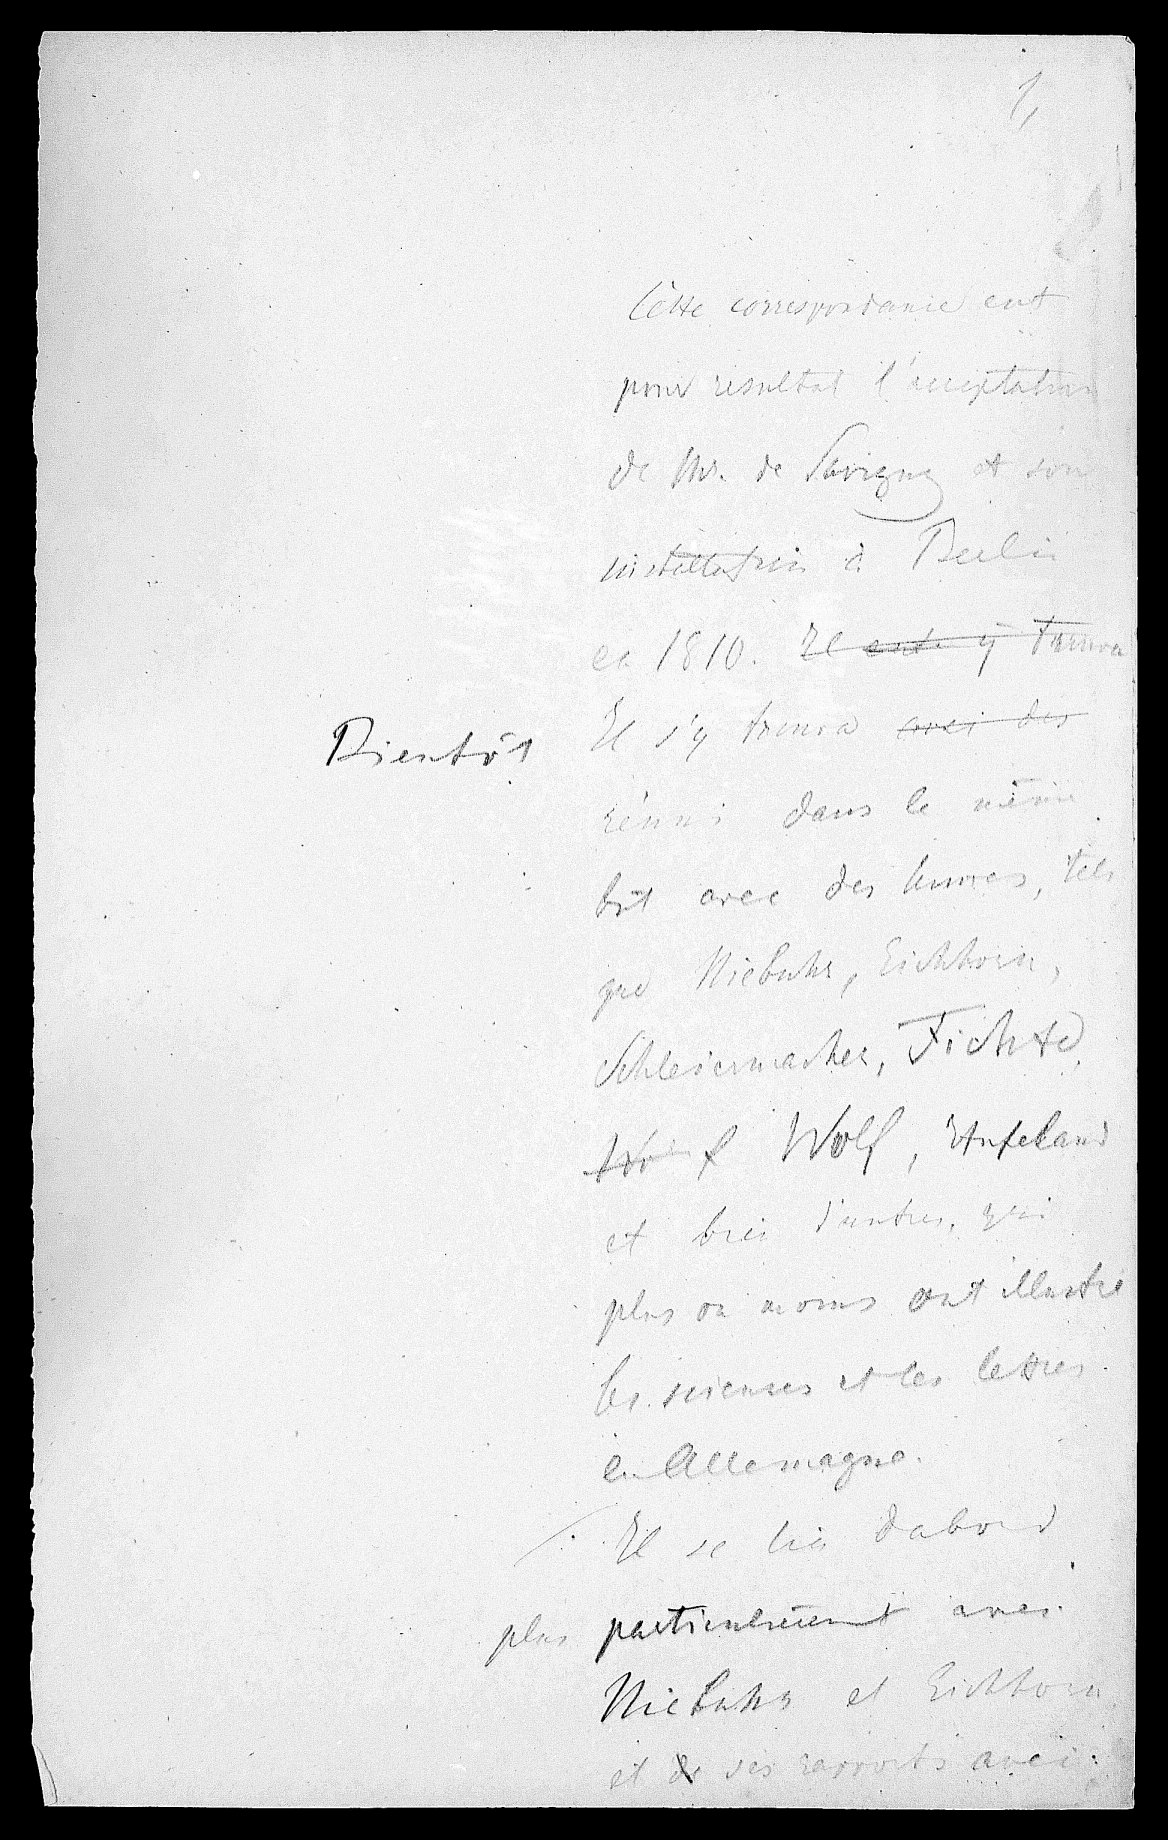 1,
Cette correspondance eut
pour resultat l'acceptation
de Mr. de Savigny et son
installation à Berlin
en 1810. Il eut y trouva
Bientôt Il s'y trouva avec des
réuni dans le même
but avec des hommes, tels
que Niebuhr, Eichhorn,
Schleiermacher, Fichte,
Wolf, Hufeland
et bien d'autres, qui
plus ou moins ont illustré
les sciences et les lettres
en Allemagne.
Il se lia dabord
plus particulièrement avec
Niebuhr et Eichhorn
et de ses rapports avec